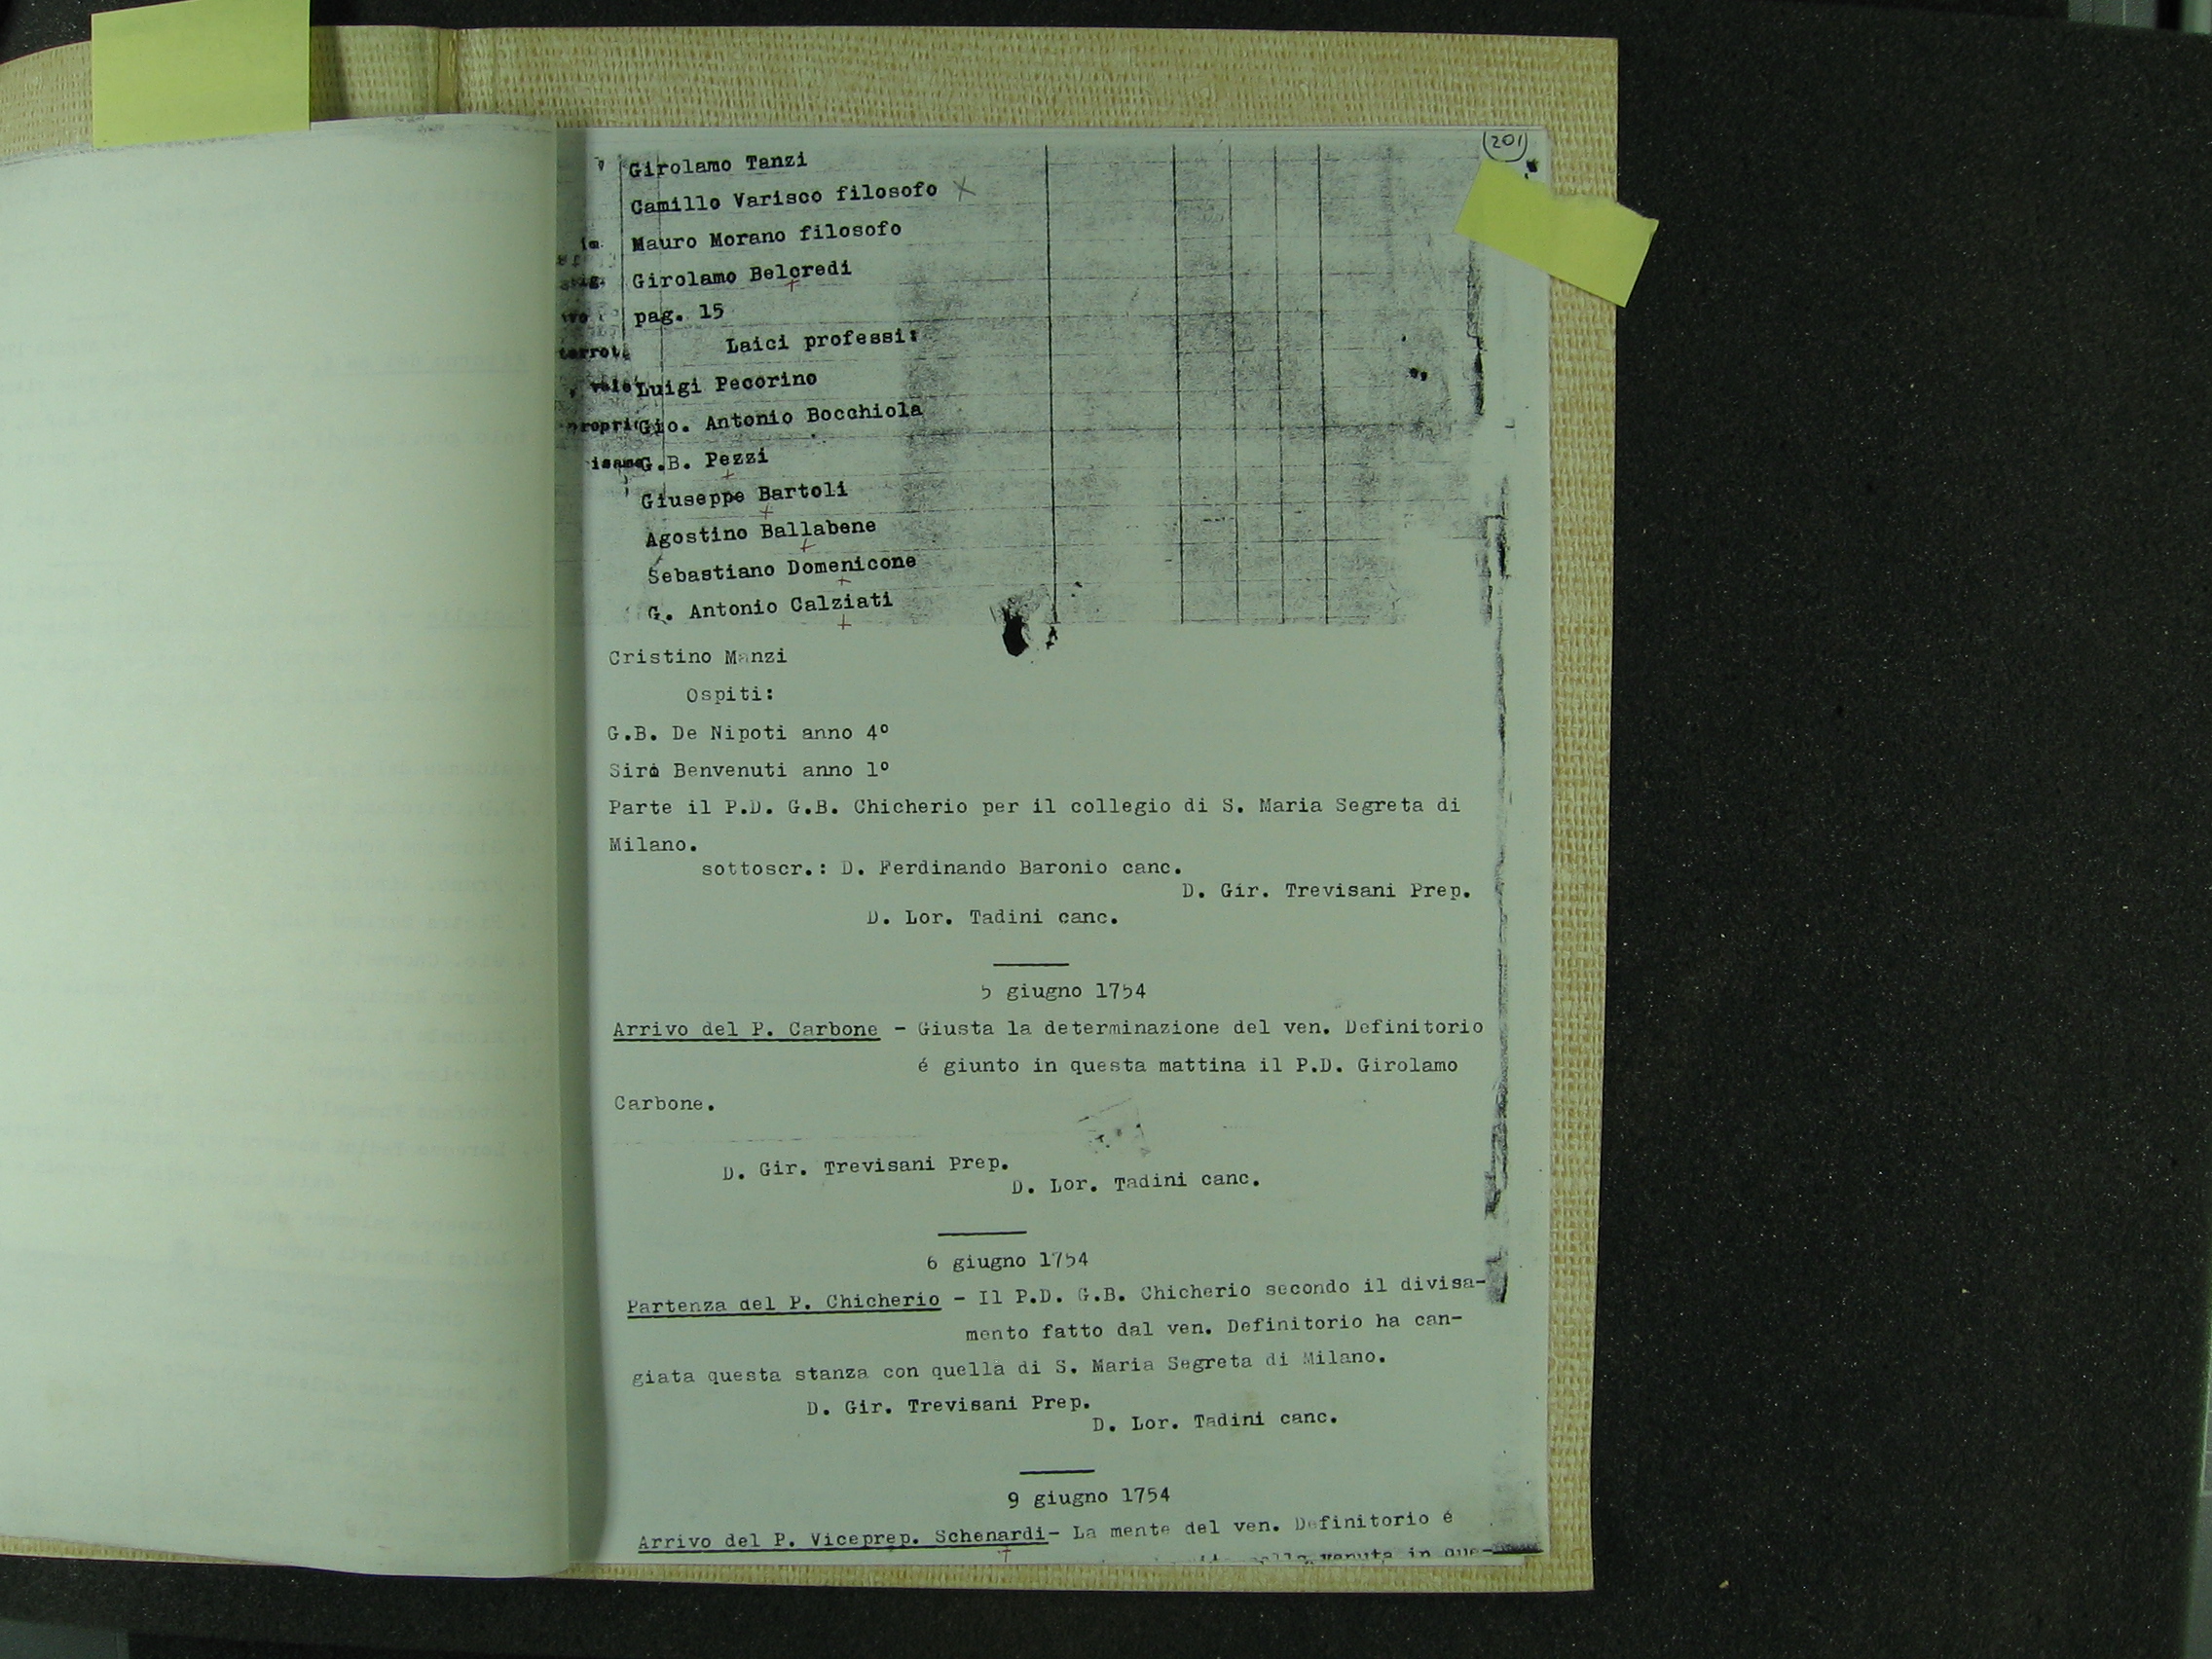 201
Girolamo Tanzi
Camillo Varisco filosofo X
Mauro Morano filosofo
Girolamo Belcredi
pag. 15
Laici professi:
Luigi Pecorino
Gio. Antonio Bocchiola
G.B. Pezzi
Giuseppe Bartoli
Agostino Ballabene
Sebastiano Domenicone
G. Antonio Calziati
Cristino Manzi
Ospiti:
G.B. De Nipoti anno 4º
Siro Benvenuti anno 1º
Parte il P.D. G.B. Chicherio per il collegio di S. Maria Segreta di
Milano.
sottoscr.: D. Ferdinando Baronio canc.
D. Gir. Trevisani Prep.
D. Lor. Tadini canc.
5 giugno 1754
Arrivo del P. Carbone - Giusta la determinazione del ven. Definitorio
é giunto in questa mattina il P.D. Girolamo
Carbone.
D. Gir. Trevisani Prep.
D. Lor. Tadini canc.
6 giugno 1754
Partenza del P. Chicherio - Il P.D. G.B. Chicherio secondo il divisa-
mento fatto dal ven. Definitorio ha can-
giata questa stanza con quella di S. Maria Segreta di Milano.
D. Gir. Trevisani Prep.
D. Lor. Tadini canc.
9 giugno 1754
Arrivo del P. Viceprep. Schenardi- La mente del ven. Definitorio é
venuta in que-